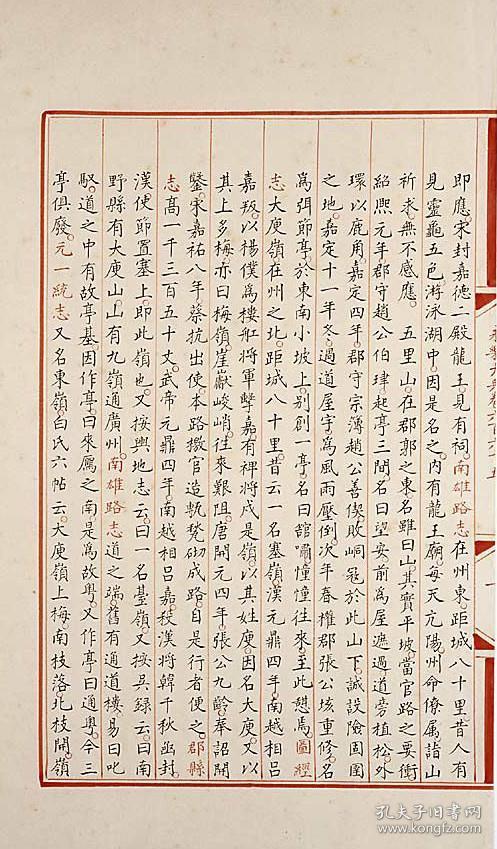 即應。宋封嘉德二殿龍王。見有祠。南雄路志在州東。距城八十里。昔人有
見靈龜五色。游泳湖中。因是名之。内有龍王廟。每天亢陽。州命僚属詣山
祈求。無不感應。 五里山。在郡郭之東。名雖曰山。其實平坡。當官路之要衝。
紹熙元年。郡守趙公伯瑋起亭三間。名曰望安。前爲屋遮過道。旁植松。外
環以鹿角。嘉定四年。郡守宗簿趙公善偰敗峒冦於此山下。誠設險固圉
之地。嘉定十一年冬。過道屋宇爲風雨壓倒。次年春。權郡張公垓重修。名
爲弭節亭。於東南小坡上。別創一亭。名曰舘嘯。憧憧往來。至此憇焉。圖經
志大庾嶺在州之北。距城八十里。昔云一名塞嶺。漢元鼎四年。南越相吕
嘉叛。以楊僕爲樓舡將軍擊嘉。有禆將戍是嶺。以其姓庾。因名大庾。又以
其上多梅。亦曰梅嶺。崖巘峻峭。往來艱阻。唐開元四年。張公九齡奉詔開
鑿。宋嘉祐八年。蔡抗出使本路。檄官造甎甃砌成路。自是行者便之。郡縣
志高一千三百五十丈。武帝元鼎四年。南越相吕嘉。敗漢將韓千秋。函封
漢使節置塞上。即此嶺也。又按輿地志云。曰一名䑓嶺。又按吳録云。曰南
野縣有大庾山。山有九嶺。通廣州。南雄路志道之端。舊有通道樓。易曰叱
馭。道之中有故亭基。因作亭曰來鴈。之南是爲故粤。又作亭曰通粤。今三
亭俱廢。元一統志又名東嶺。白氏六帖云。大庾嶺上梅。南枝落。北枝開。嶺
孔夫子旧书网
www.kongfz.com